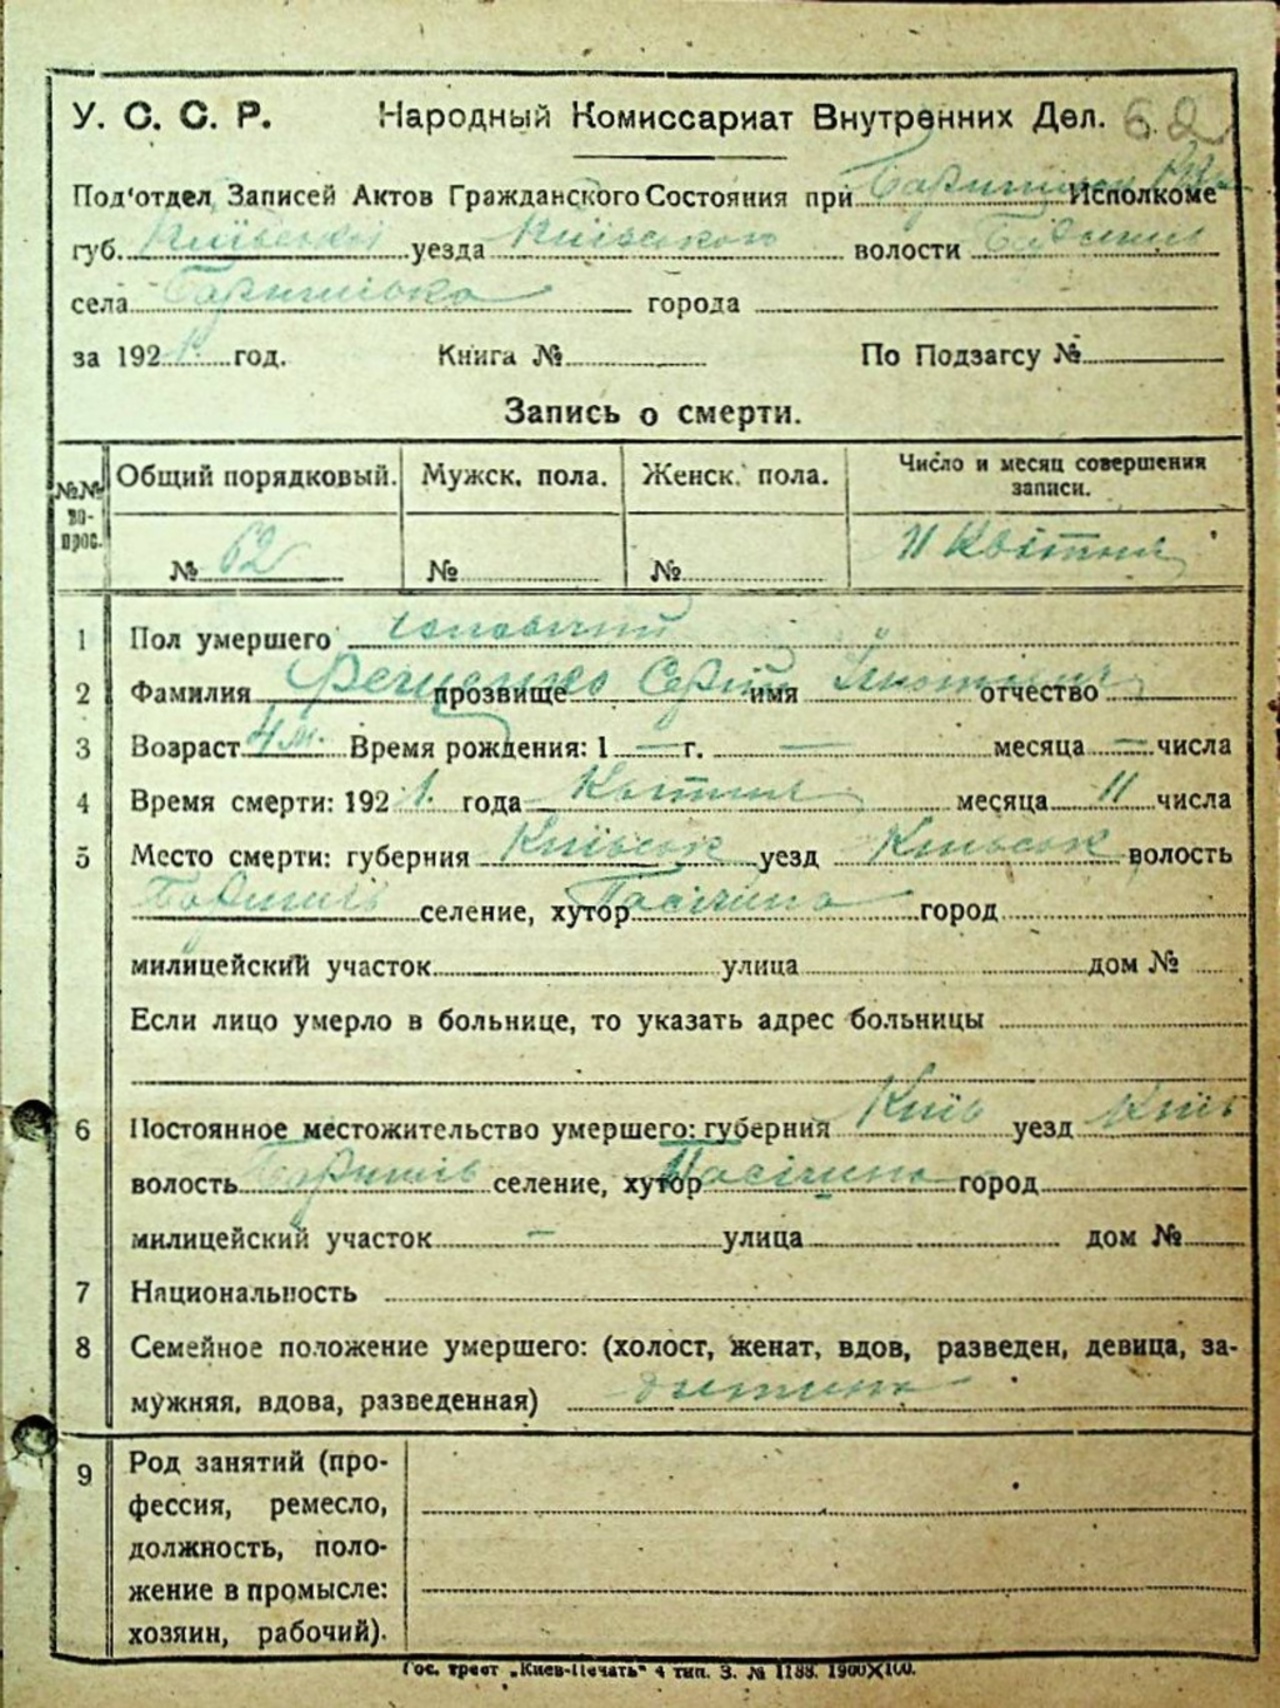 У. С. С. Р. Народный Комиссариат Внутренних Дел. 62
Под'отдел Записей Актов Гражданского Состояния при Исполкоме
губ. Київської уезда Київського волости
села Баришівка города
за 1921. год. Книга № По Подзагсу №
Запись о смерти.
№№ вопрос. Общий порядковый. Мужск. пола. Женск. пола. Число и месяц совершения записи.
№ 62 № № 11 Квітня
1 Пол умершего чоловічий
2 Фамилия прозвище Сергій имя отчество
3 Возраст 4 м. Время рождения: 1 — г. — месяца — числа
4 Время смерти: 1921. года Квітня месяца 11 числа
5 Место смерти: губерния Київськ уезд Київськ волость
Баришів селение, хутор Пасічна город
милицейский участок улица дом №
Если лицо умерло в больнице, то указать адрес больницы
6 Постоянное местожительство умершего: губерния Київ уезд Київ
волость Баришів селение, хутор Пасічна город
милицейский участок — улица дом №
7 Национальность
8 Семейное положение умершего: (холост, женат, вдов, разведен, девица, за-
мужняя, вдова, разведенная) дитина
9 Род занятий (про-
фессия, ремесло,
должность, поло-
жение в промысле:
хозяин, рабочий).
Гос. трест „Киев-Печать“ 4 тип. З. № 1188. 1900Х100.